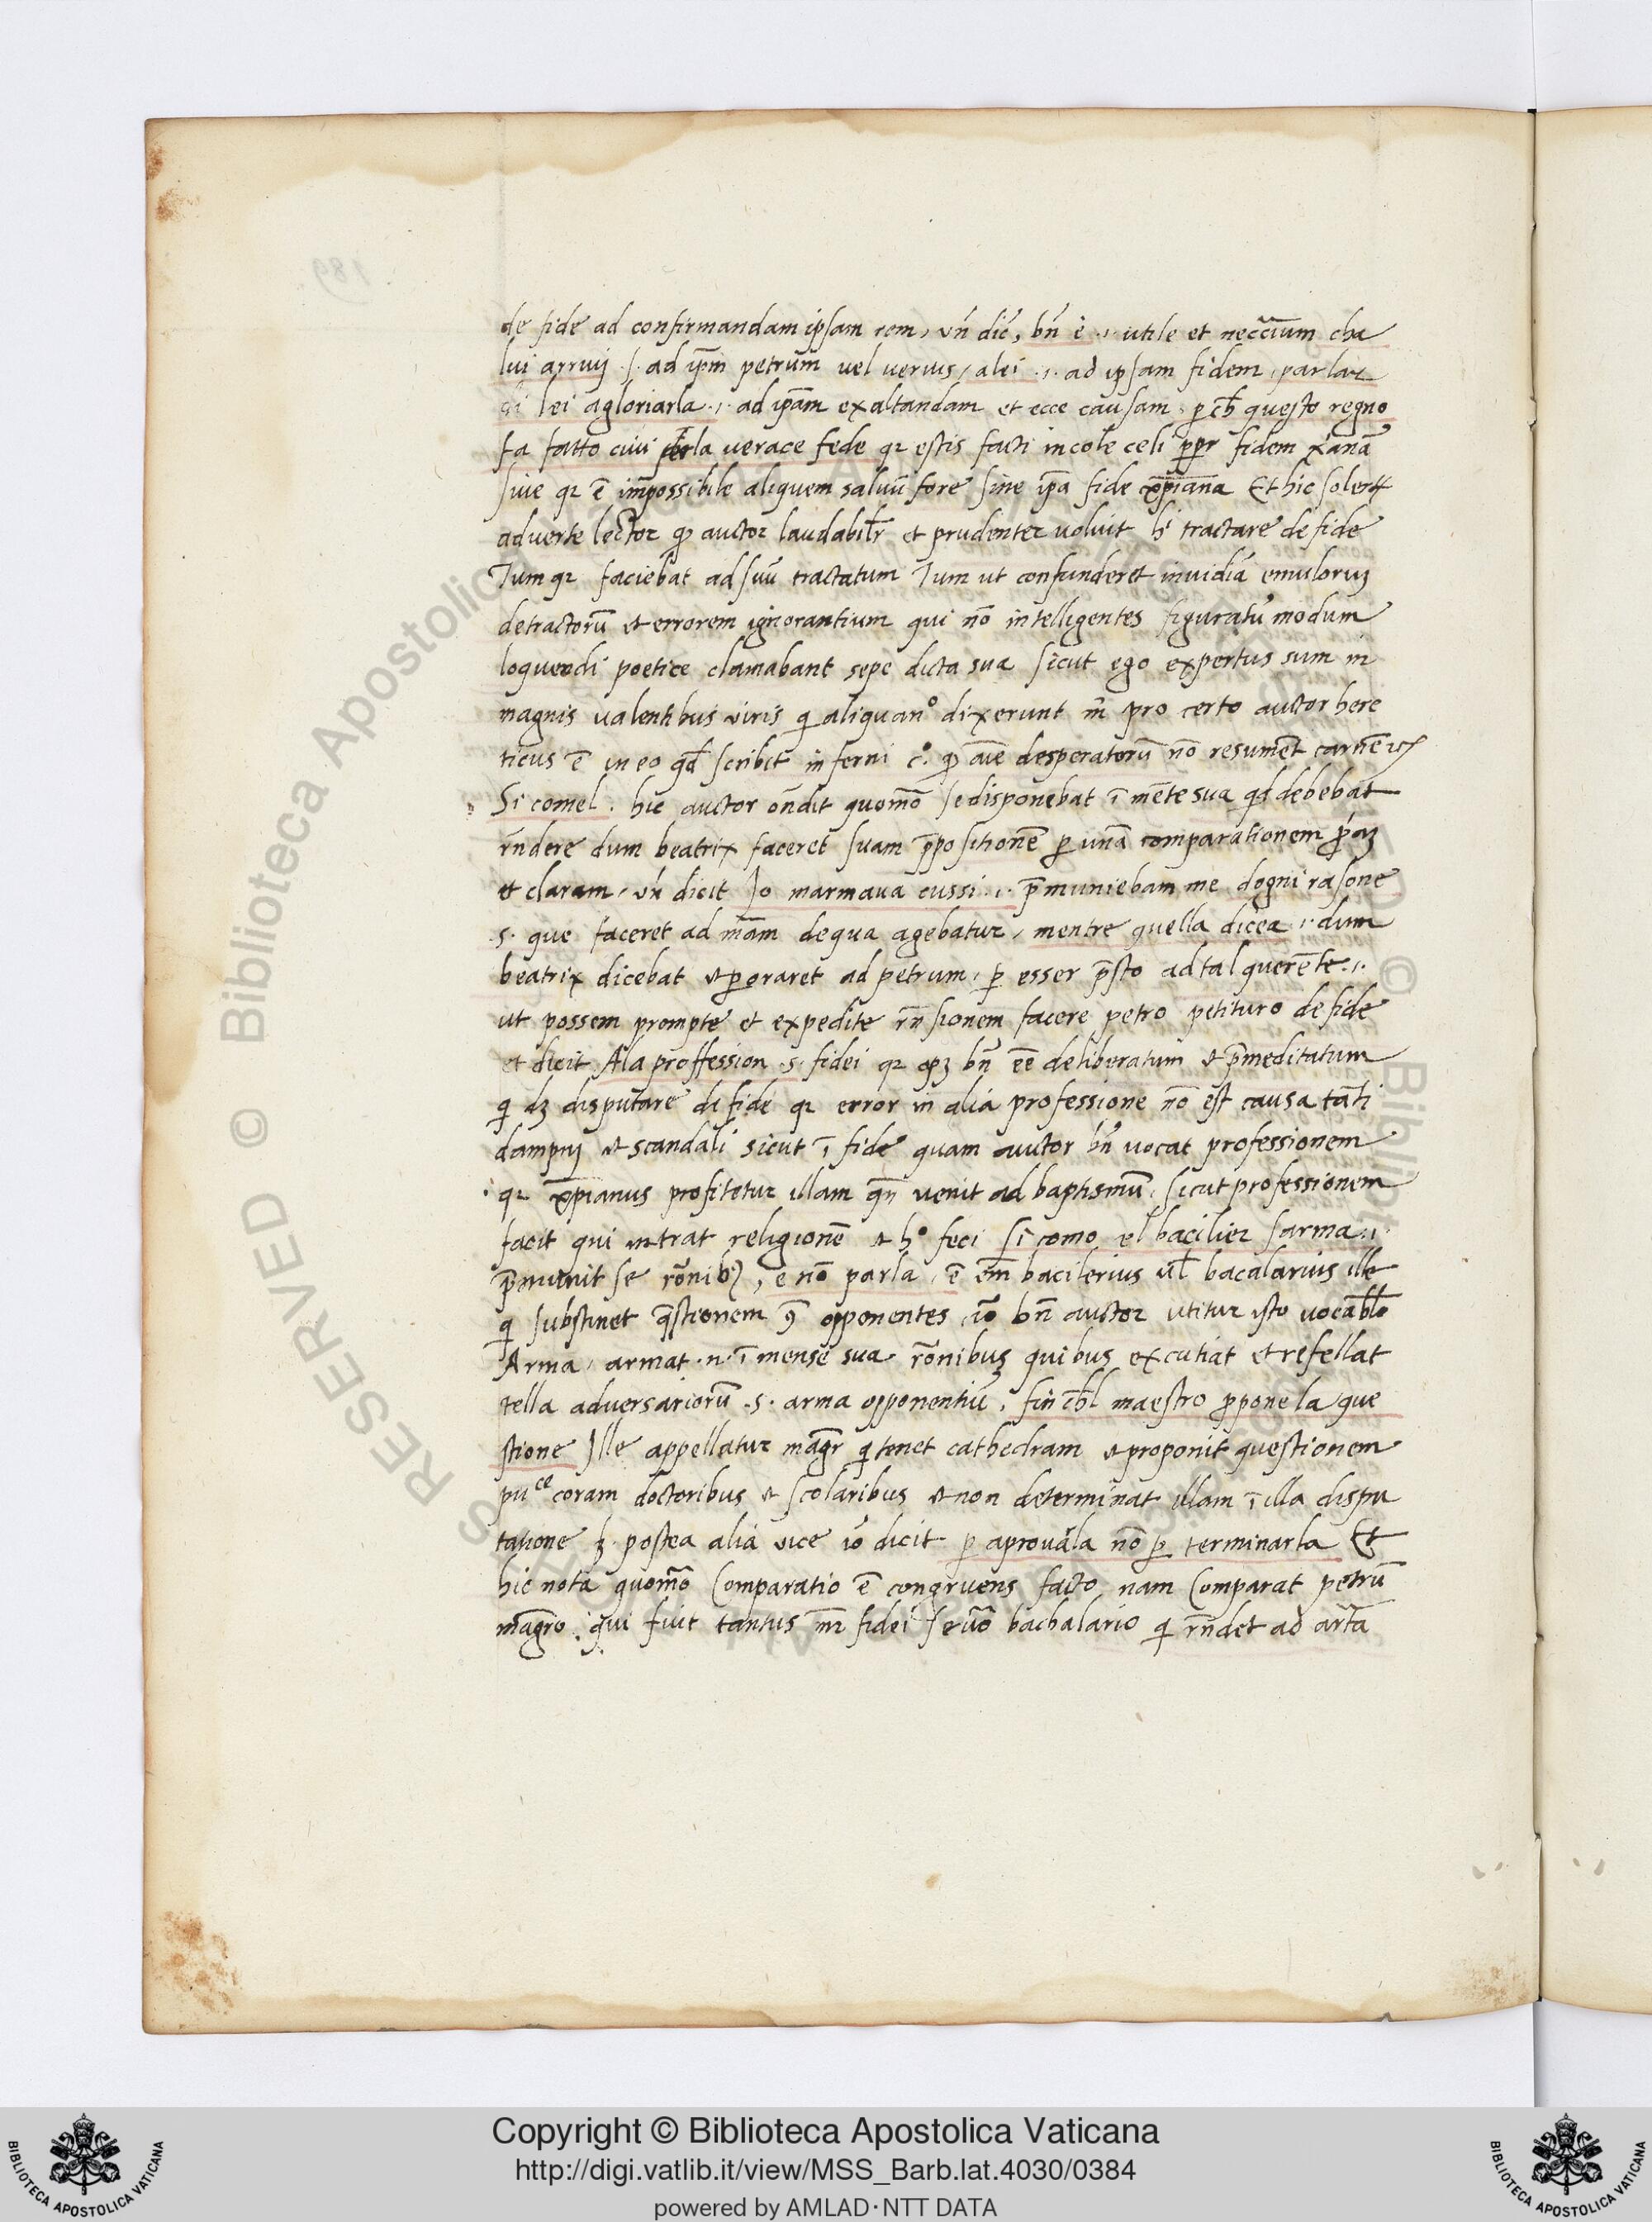 de fide ad confirmandam ipsam rem, vn̄ dic̄, bn̄ è .i. utile et neccīum cha
lui arrivi .s. ad ip̄m petrum vel verius, alei .i. ad ipsam fidem, parlar
di lei agloriarla .i. ad ip̄am exaltandam et ecce causam p ch̄ questo regno
fa fatto civi perla verace fede qr estis facti incole celi pp̄r fidem xānā
sive qr ē impossibile aliquem salvū fore sine ip̄a fide xp̄iana Et hic solert
adverte lector qp auctor laudabilr̄ et prudenter voluit hi tractare de fide
Tum qr faciebat ad suū tractatum Tum ut confunderet invidiā emulorum
detractorū et errorem ignorantium qui nō intelligentes figuratū modum
loquendi poetice clamabant sepe dicta sua sicut ego expertus sum in
magnis valentibus viris q aliquan° dixerunt m̄ pro certo auctor here
ticus ē in eo qd̄ scribit inferni c°. qp aīe desperatorū nō resument carnē
Si comel. hic auctor on̄dit quomō se disponebat ī mēte sua qd debebat
rn̄dere dum beatrix faceret suam p̄positionē p unā comparationem
et claram, vn̄ dicit Jo marmava cussi .i. p̄muniebam me dogni rasone
.s. que faceret ad mām de qua agebatur, mentre quella dicea .i. dum
beatrix dicebat et poraret ad petrum, p esser p̄sto ad tal querēte .i.
ut possem prompte et expedite rn̄sionem facere petro petituro de fide
et dicit Ala proffession .s. fidei qr opz bn̄ eē deliberatum et p̄meditatum
q dz disputare de fide qr error in alia professione nō est causa tāti
dampni et scandali sicut ī fide quam auctor bn̄ vocat professionem
qr xp̄ianus profitetur illam qn̄ venit ad baptismū, sicut professionem
facit qui intrat religionē et h° feci Si como el bacilier sarma .i.
p̄munit se rōnibz, e nō parla, ē em̄ bacilerius vl̄ bacalarius ille
q substinet q̄stionem 9 opponentes iō bn̄ auctor utitur isto vocablo
Arma, armat .n. ī mense sua rōnibus quibus excutiat et refellat
tella adversariorū .s. arma opponentiū, fin chl̄ maestro propone la que
stione Jlle appellatur magr̄ q tenet cathedram et proponit questionem
puce coram doctoribus et scolaribus et non determinat illam ī illa dispu
tatione sz postea alia vice iō dicit p aprovala nō p terminarla Et
hic nota quomō Comparatio ē congruens facto, nam Comparat petrū
magrō qui fuit tantus mr̄ fidei se vō bachalario q rn̄det ad arta
Copyright © Biblioteca Apostolica Vaticana
http://digi.vatlib.it/view/MSS_Barb.lat.4030/0384
powered by AMLAD·NTT DATA
BIBLIOTECA APOSTOLICA VATICANA
BIBLIOTECA APOSTOLICA VATICANA